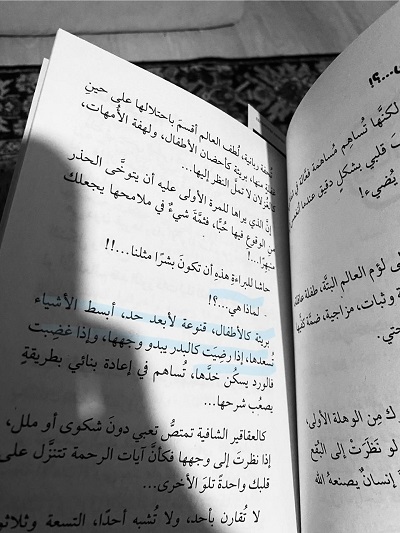 تحفة ربانية، لُطف العالم أقسمَ باحتلالها على حينِ
منها، بريئة كأحضان الأطفال، ولهفة الأُمهات،
كالغزلان لا تملّ النظر إليها...
إنَّ الذي يراها للمرة الأولى عليه أن يتوخَّى الحذر
من الوقوع فيها حُبًّا، فثمَّة شيءٌ في ملامحها يجعلك
منبهرًا...!
حاشا للبراءةِ هذهِ أن تكونَ بشرًا مثلنا...!!
لماذا هي...؟!
بريئة كالأطفال، قنوعة لأبعد حد، أبسط الأشياء
تُسعدها، إذا رضِيَت كالبدر يبدو وجهها، وإذا غضِبت
فالورد يسكُن خدَّها، تُساهم في إعادة بنائي بطريقةٍ
يصعُب شرحها...
كالعقاقير الشافية تمتصُّ تعبي دونَ شكوى أو ملل،
إذا نظرتَ إلى وجهها فكأنَّ آيات الرحمة تتنزَّل على
قلبك واحدةً تلوَ الأخرى...
لا تُقارن بأحد، ولا تُشبه أحدًا، التسعة وثلاثو
...؟!
لكنَّها تُساهِم مُساهمة فعَّالة في
قلبي بشكلٍ دقيق عندما
يُضيء!
لؤم العالم البتَّة، طفلة
وثبات، مزاجية، ضمَّة كفَّيها
حتي.
من الوهلة الأولى،
لو نَظَرَتْ إلى البُقع
إنسانٌ يصنعهُ الله